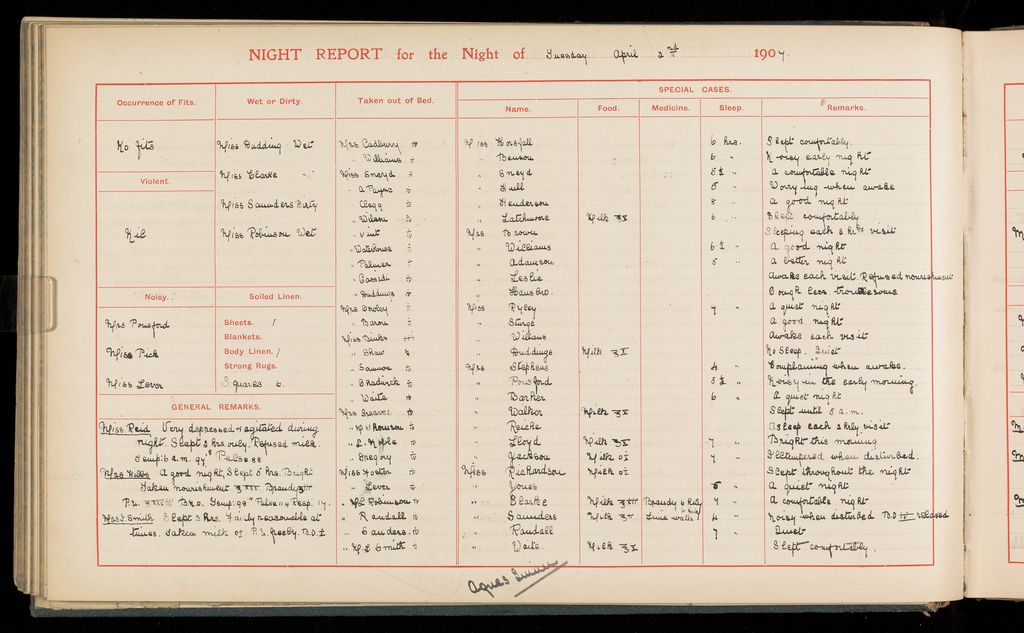 NIGHT REPORT for the Night of Tuesday April 2nd 1907.
SPECIAL CASES.
Occurrence of Fits.
No fits
Violent.
Nil
Noisy.
Mrs Pousford
Miss Pick
Miss Lever
Wet or Dirty.
Miss Budding Wet
Miss Clarke "
Miss Saunders Dirty
Miss Robinson Wet
Soiled Linen.
Sheets. 1
Blankets.
Body Linen. 1
Strong Rugs.
Squares 6.
GENERAL REMARKS.
Miss Reid Very depressed & agitated during
night. Slept 3 hrs only. Refused milk.
Temp: 6 a.m. Pulse 88
A good night, Slept 5 hrs. Bright
Taken nourishment Brandy
Temp: Pulse Resp. 17.
Mrs F. Smith Slept 3 hrs. Fairly reasonable at
times. Taken milk
Taken out of Bed.
Mrs Cadbury
" Williams
Miss Sneyd
" A Payne
" Clegg
" Wilson
" Vint
" Waterhouse
" Palmer
" Cassidi
" Buddings
Mrs
" Baron
Miss
" Shaw
" Saumon
" Chadwick
" Waite
Mrs Greaves
"
" L. Noble
" Gregory
Miss Foster
" Lever
" M.L. Robinson
" Randall
" Saunders.
" M. E Smith
Name. Food. Medicine. Sleep. Remarks.
Miss Horsfall 6 hrs. Slept comfortably.
" Benson 6 " Noisy early night
" Sneyd 5½ " A comfortable night
" Hull 5 " Worrying when awake
" Henderson 8 " A good night
" Latchmore Milk ℥X 6 " Slept comfortably
Mrs Brown Sleeping each 2 hrly visit
" Williams 6½ " A good night
" Adamson 5 " A better night
" Leslie Awake each visit. Refused nourishment
" Hansbro. Cough less troublesome
Miss Pyley 7 " A quiet night
" Sturge A good night
" Williams Awake each visit
" Buddings Milk ℥X No Sleep. Quiet
Mrs Stephens 4 " Complaining when awake.
" Pousford 5½ " Noisy in the early morning
" Barker 6 " A quiet night
" Walker Milk ℥X Slept until 5 a.m.
" Reiche Asleep each hrly. visit
" Lloyd Milk ℥X 7 " Bright this morning
" Jackson Milk OI 7 " Illtempered when disturbed.
Miss Richardson Milk OI Slept throughout the night
" Jones 5 " A quiet night
" Clarke Milk Brandy 6 hrly 7 " A comfortable night
" Saunders Milk Lime water 4 " Noisy when disturbed B.O. relaxed
" Randall 7 " Quiet
" Waite. Milk ℥X Slept comfortably.
Agnes